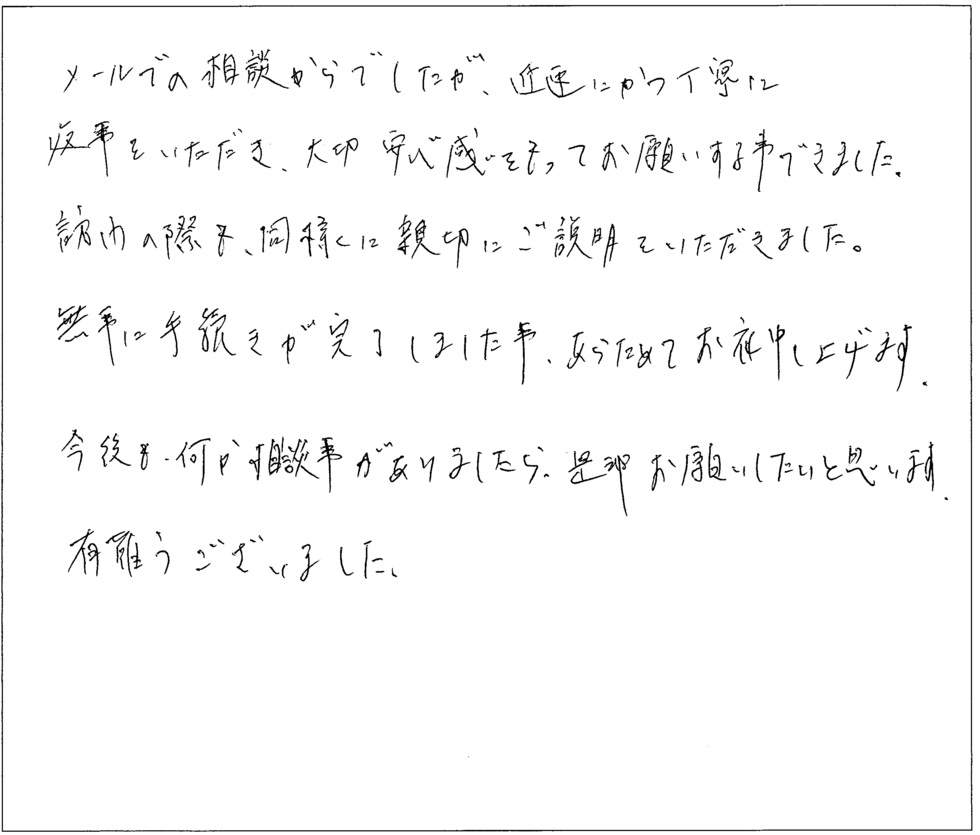 メールでの相談からでしたが、迅速にかつ丁寧に
返事をいただき、大切 安心感をもってお願いする事できました。
訪問の際も、同様に親切にご説明をいただきました。
無事に手続きが完了しました事、あらためてお礼申し上げます.
今後も、何か相談事がありましたら、是非お願いしたいと思います.
有難うございました。